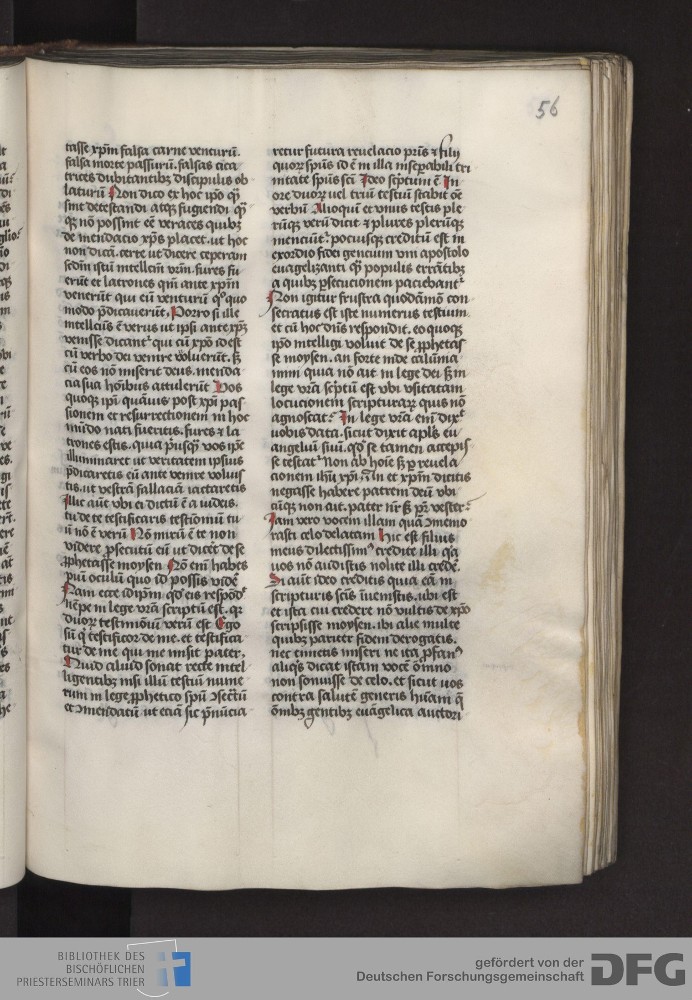 56
tasse xpm̄ falsa carne venturū.
falsa morte passurū. falsas cica
trices dubitantibꝫ discipulis ob
laturū Non dico ex hoc ip̄o qꝫ
sint detestandi atqꝫ fugiendi qꝫ
qꝫ nō possint eē veraces quibꝫ
de mendacio xp̄s placet. ut hoc
non dicā. certe ut dicere ceperam
scdm̄ istū intellcm̄ vr̄m. fures fu
erūt et latrones qm̄ ante xpm̄
venerūt qui eū venturū qͦquo
modo p̄dicauerūt, Porro si ille
intellcūs ē verus ut ipsi ante xp̄ꝫ
venisse dicantᷣ qui cū xpō id est
cū verbo dei venire voluerūt. sꝫ
cū eos nō miserit deus. menda
cia sua hoībus attulerūt Vos
quoqꝫ ip̄i quāuis post xpī pas
sionem et resurrectionem in hoc
mūdo nati fueritis. fures ⁊ la
trones estis. quia p̄usqꝫ vos ip̄e
illuminaret ut veritatem ipsius
p̄dicaretis eū ante venire voluis
tis. ut vestrā fallaciā iactaretis
Illic aūt vbi ei dictū ē a iudeis.
tu de te testificaris testīoniū tu
ū nō ē verū Nō mirū ē te non
videre ꝓsecutū eū ut dicēt de se
ꝓphetasse moysen Nō em̄ habes
piū oculū quo id possis vidē
Nam ecce idīpm̄ qd̄ eis respōdᷣ
nēpe in lege vr̄a scriptū est. qꝛ
duorᷣ testimōiū verū est Ego
sū qͥ testificor de me. et testifica
tur de me qui me misit pater,
Quid aliud sonat recte intel
ligentibꝫ nisi illū testiū nume
rum in lege ꝓphetico spū ꝯsectū
et ꝯmendatū ut eciā sic p̄nūcia
retur futura reuelacio prīs ⁊ filij
quorꝝ spūs id ē in illa insepabili tri
nitate spūs scī Ideo scptum ē In
ore duorꝝ uel triū testiū stabit oē
verbū Alioqui et vnius testis ple
rūqꝫ verū dicit ⁊ plures plerūqꝫ
menciūtᷣ pociusqꝫ creditū est in
exordio fidei gencium vni apostolo
euagelizanti qꝫ populis errātibꝫ
a quibꝫ psecucionem paciebantᷣ
Non igitur frustra quodāmō con
secratus est iste numerus testium
et cū hoc dn̄s respondit. eo quoqꝫ
ip̄o intelligi voluit de se ꝓphetas
se moysen. an forte inde calūma
mini quia nō ait in lege dei sꝫ in
lege vr̄a scēptū est vbi vsitatam
locucionem scripturarꝝ quis nō
agnoscatᷣ In lege vr̄a em̄ dixᷣt
uobis data. sicut dixit apls̄ eu
angeliū suū. qd̄ se tamen accepis
se testatᷣ Non ab hoīe sꝫ p reuela
cionem ihū xpī nͥ In et xpm̄ dicitis
negasse habere patrem deū vbi
cūqꝫ non ait. pater nr̄ sꝫ pr̄ vester
Iam vero vocem illam quā ꝯmemo
rasti celo delatam Hic est filius
meus dilectissimꝰ credite illi q̄a
uos nō audistis nolite illi credē.
Si aūt ideo creditis quia eā in
scripturis scīs īuenistis. ubi est
et ista cui credere nō vultis de xpō
scripsisse moysen. ibi alie multe
quibꝫ pariter fidem derogatis.
nec timetis miseri ne ita ꝓfanꝰ
aliqͥs dicat istam vocē ōmīno
non sonuisse de celo. et sicut uos
contra salutē generis hūani q̄
ōmībꝫ gentibꝫ euāgelica auctori
BIBLIOTHEK DES
BISCHÖFLICHEN
PRIESTERSEMINARS TRIER
gefördert von der
Deutschen Forschungsgemeinschaft
DFG